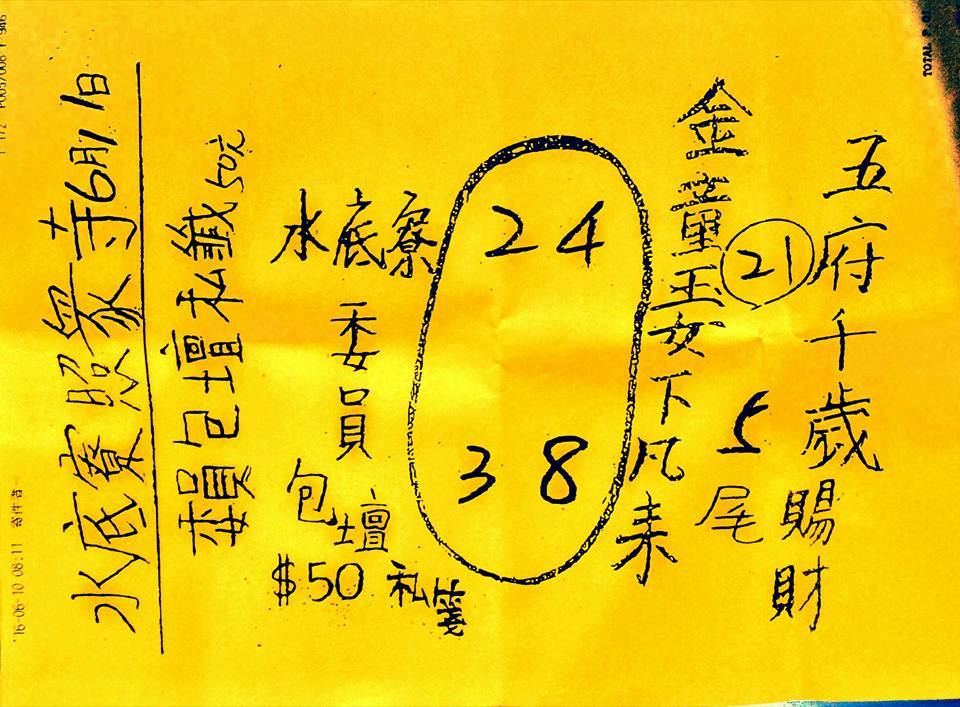 五府千歲賜財
21
5尾
金童玉女下凡來
24
38
水底寮
委員
包壇
$50 私箋
委員包壇私籤50元
水底寮照眾寺6月11日
'16-06-10 08:11 寄件者